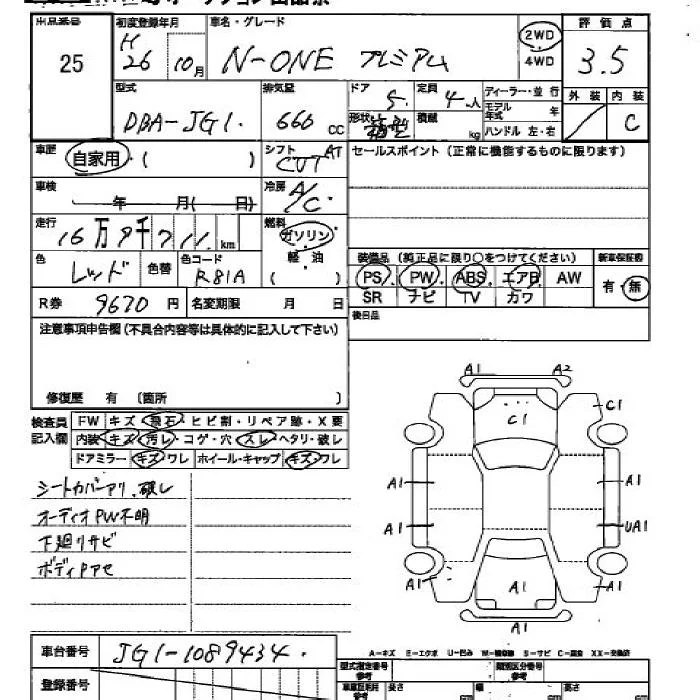 出品番号 初度登録年月 車名・グレード 評価点
25 H26 10月 N-ONE プレミアム 2WD 4WD 3.5
型式 排気量 ドア 定員 ディーラー・並行 外装 内装
DBA-JG1. 660 CC 5. 4人 モデル年式 年 C
形状 箱型 積載 kg ハンドル 左・右
車歴 自家用・( ) シフト AT CVT セールスポイント(正常に機能するものに限ります)
車検 年 月( 日) 冷房 A/C
走行 16万9千711 km 燃料 ガソリン
色 レッド 色替 色コード R81A 軽油 ( )
装備品(純正品に限り○をつけてください) 新車保証書
PS PW ABS エアB AW 有・無
SR ナビ TV カワ
R券 9670円 名変期限 月 日 後日品
注意事項申告欄(不具合内容等は具体的に記入して下さい)
修復歴 有 〔箇所 〕
検査員記入欄 FW キズ・飛石・ヒビ割・リペア跡・X要
内装 キズ・汚レ・コゲ・穴・スレ・ヘタリ・破レ
ドアミラー キズ・ワレ ホイール・キャップ キズ・ワレ
シートカバーアリ.破レ
オーディオPW不明
下廻リサビ
ボディPアセ
A1 A2
C1 C1
A1 A1
A1 UA1
A1 A1
A1
A=キズ E=エクボ U=凹み S=サビ C=腐食 XX=交換済
車台番号 JG1-1089434.
登録番号
型式指定番号 参考 類別区分番号 参考
長さ cm 幅 cm 高さ cm